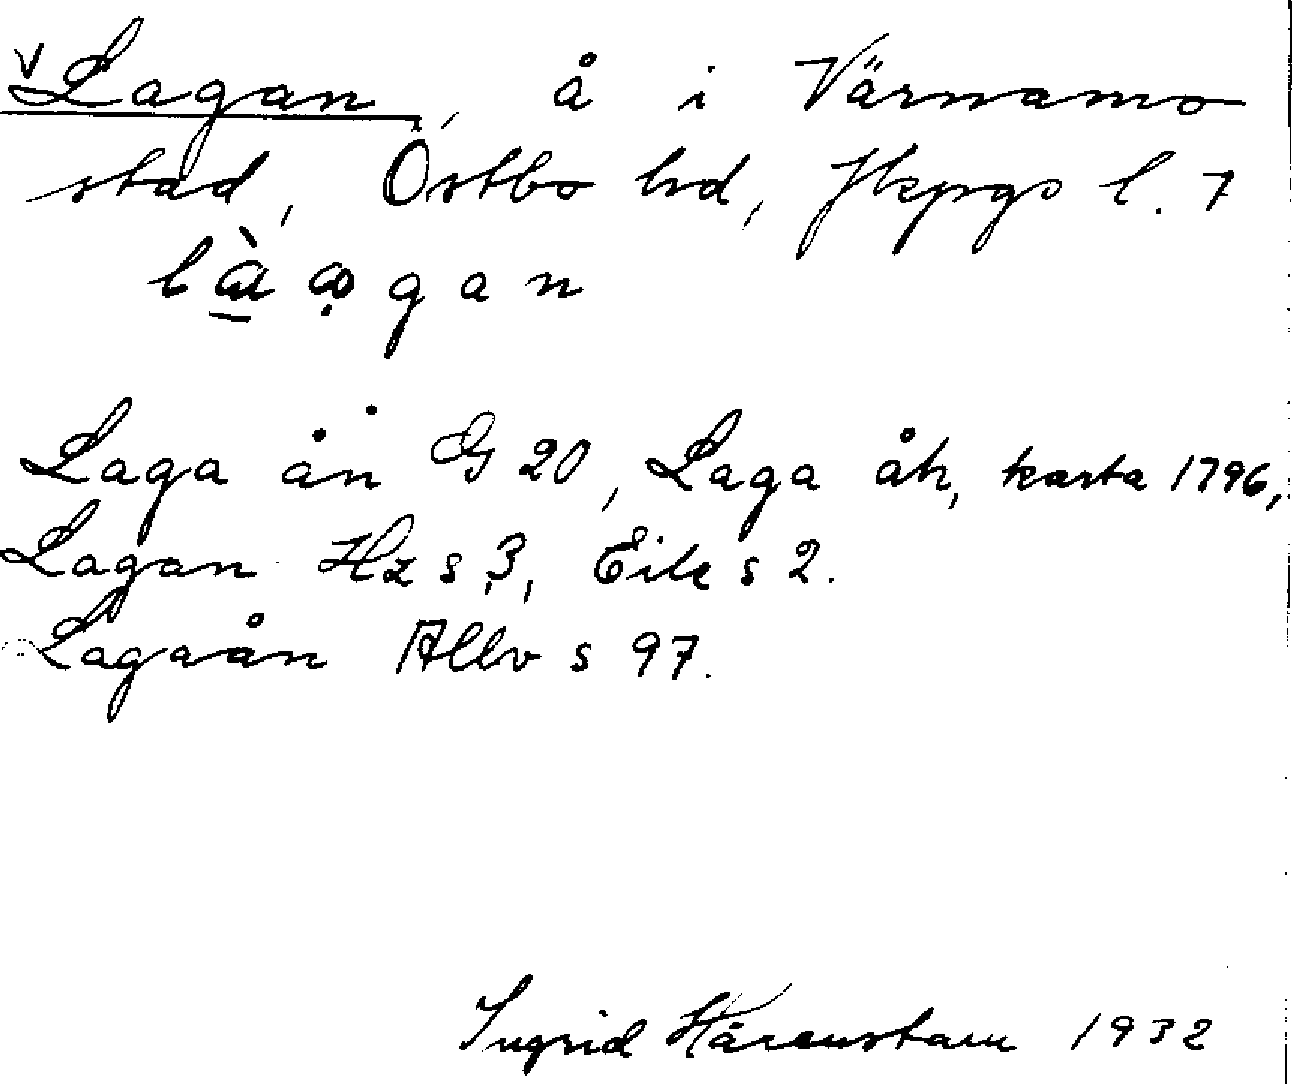 v Lagan, å i Värnamo
stad, Östbo hd, Jkpgs l. 7
Laga ån G 20, Laga åh, karta 1796,
Lagan Hz s 3, Eik s 2.
Lagaån Allv s 97.
Ingrid Härenstam 1932